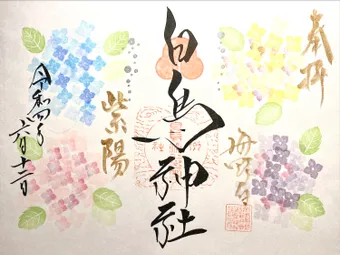 奉拝
海野宿
白鳥神社
紫陽
令和四年
六月十二日